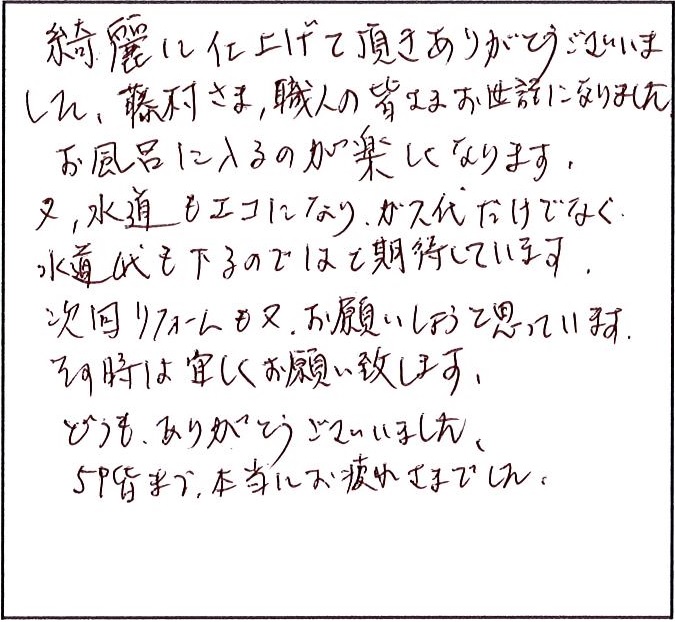 綺麗に仕上げて頂きありがとうございま
した、藤村さま,職人の皆さまお世話になりました
お風呂に入るのが楽しくなります,
又,水道もエコになり、ガス代だけでなく
水道代も下るのではと期待しています.
次回リフォームも又、お願いしようと思っています.
その時は宜しくお願い致します、
どうも、ありがとうございました、
皆さま、本当にお疲れさまでした、